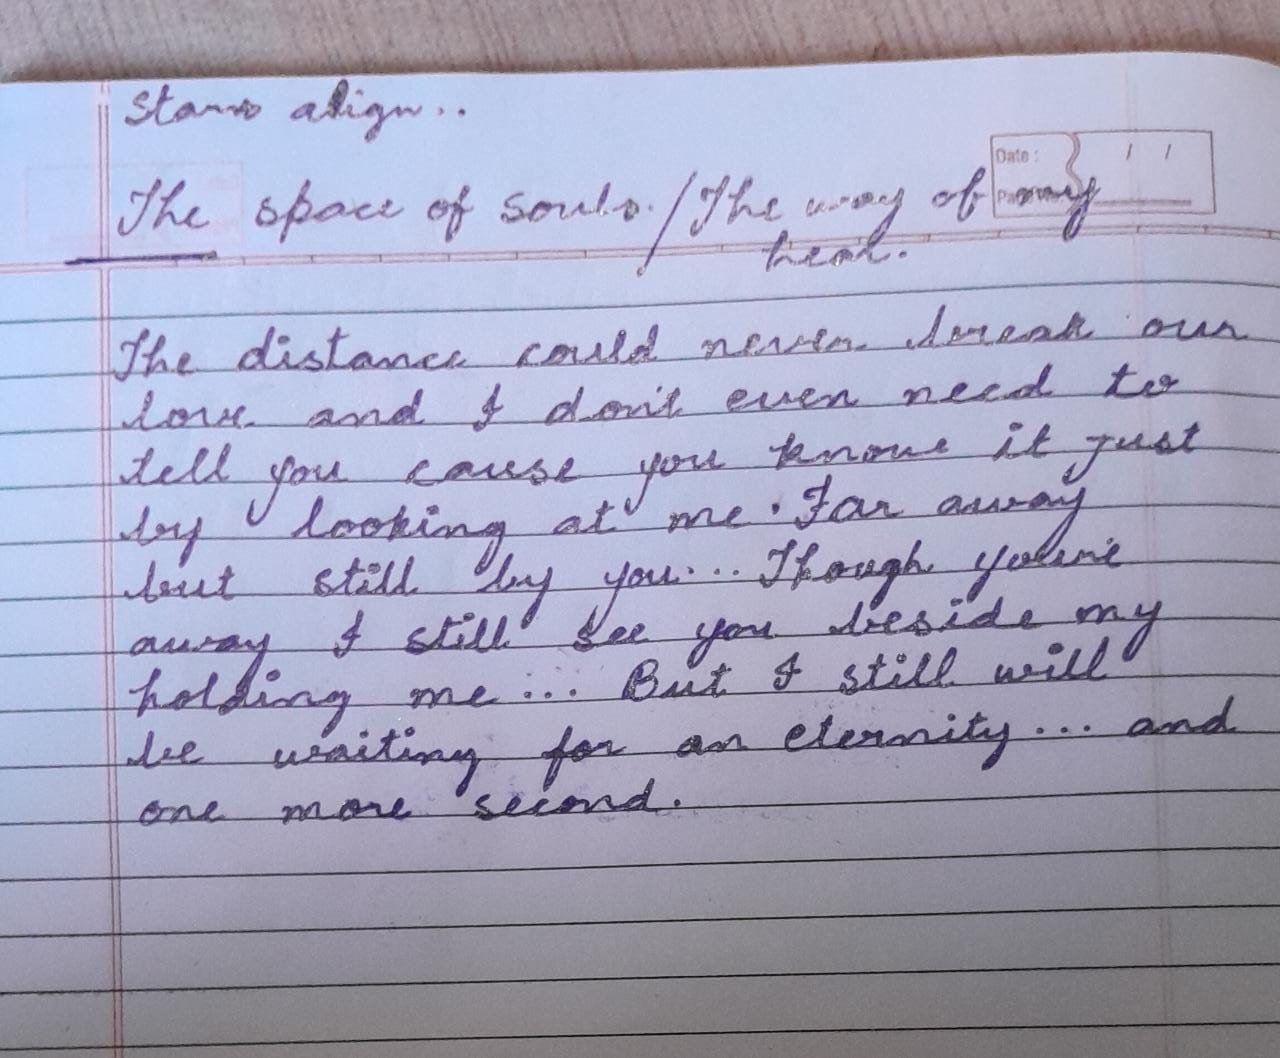 Stars align..
Date : / /
The space of souls. / The way of my
hear.
The distance could never break our
love and I don't even need to
tell you cause you know it just
by looking at me. Far away
but still by you... Though you're
away I still see you beside my
holding me... But I still will
be waiting for an eternity... and
one more second.